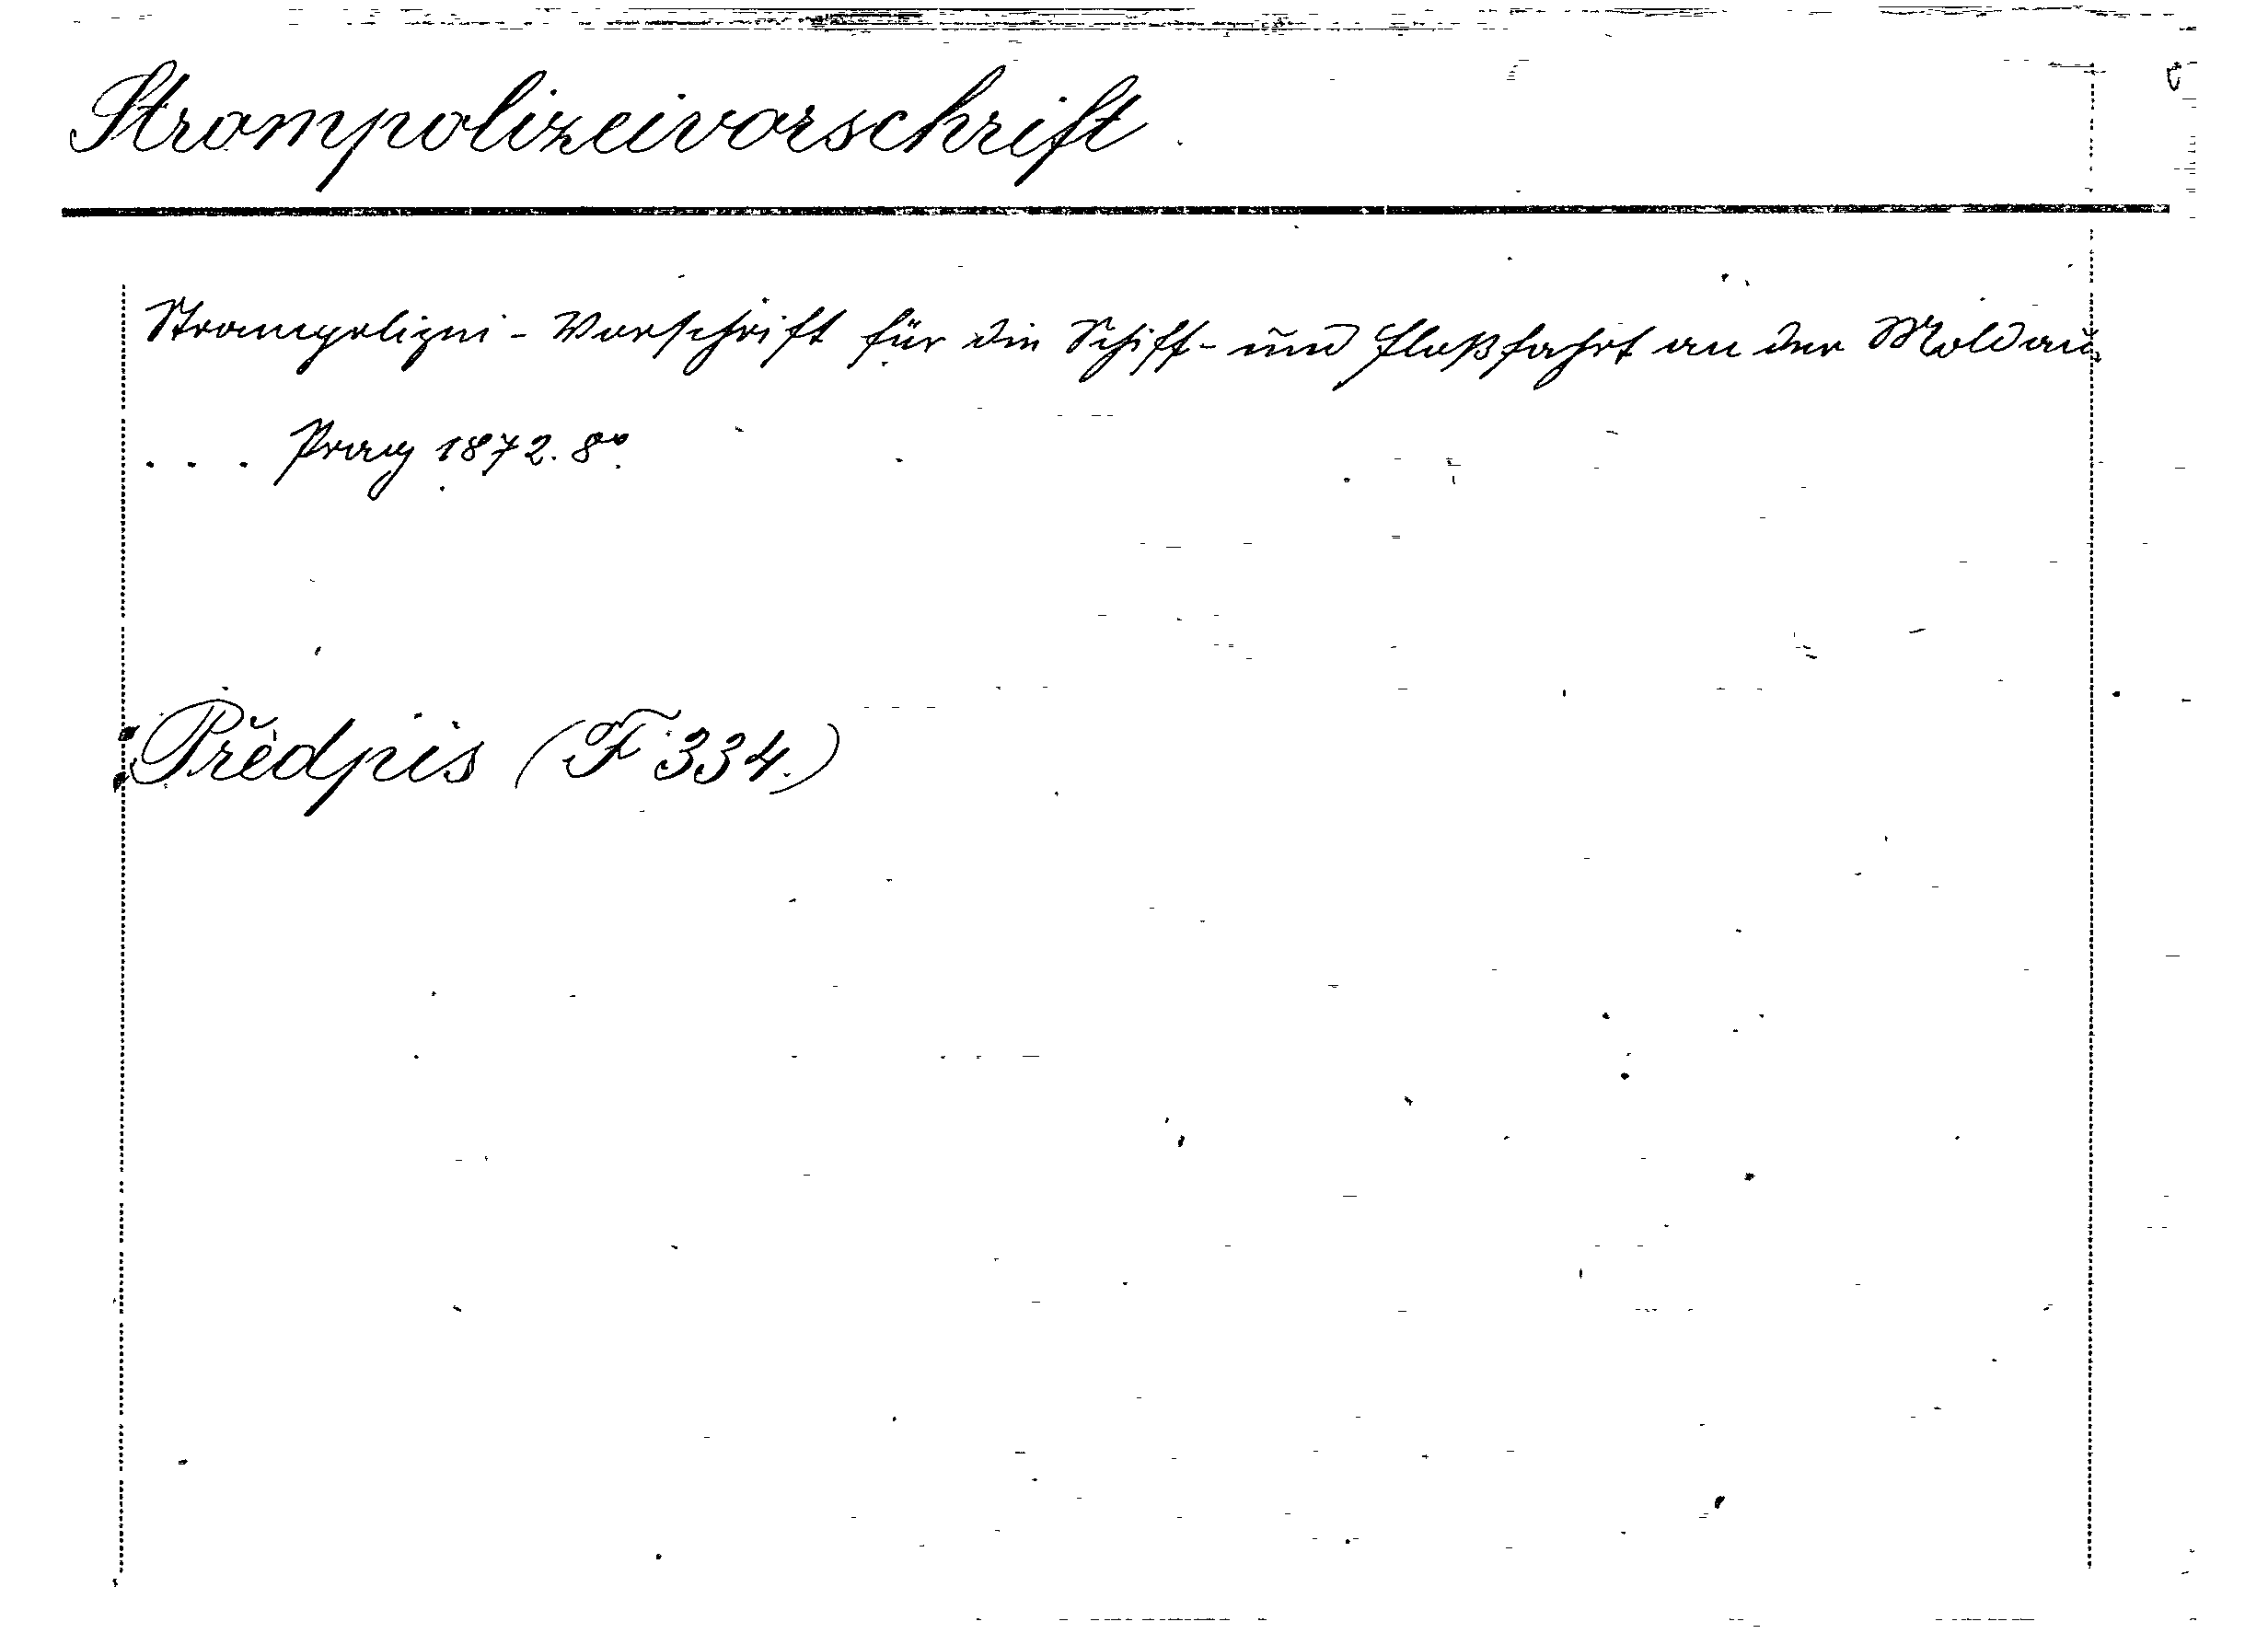 Strompolizeivorschrift.
Strompolizei-Vorschrift für die Schiff- und Floßfahrt an der Moldau.
... Prag 1872. 8º.
Předpis (F 334.)